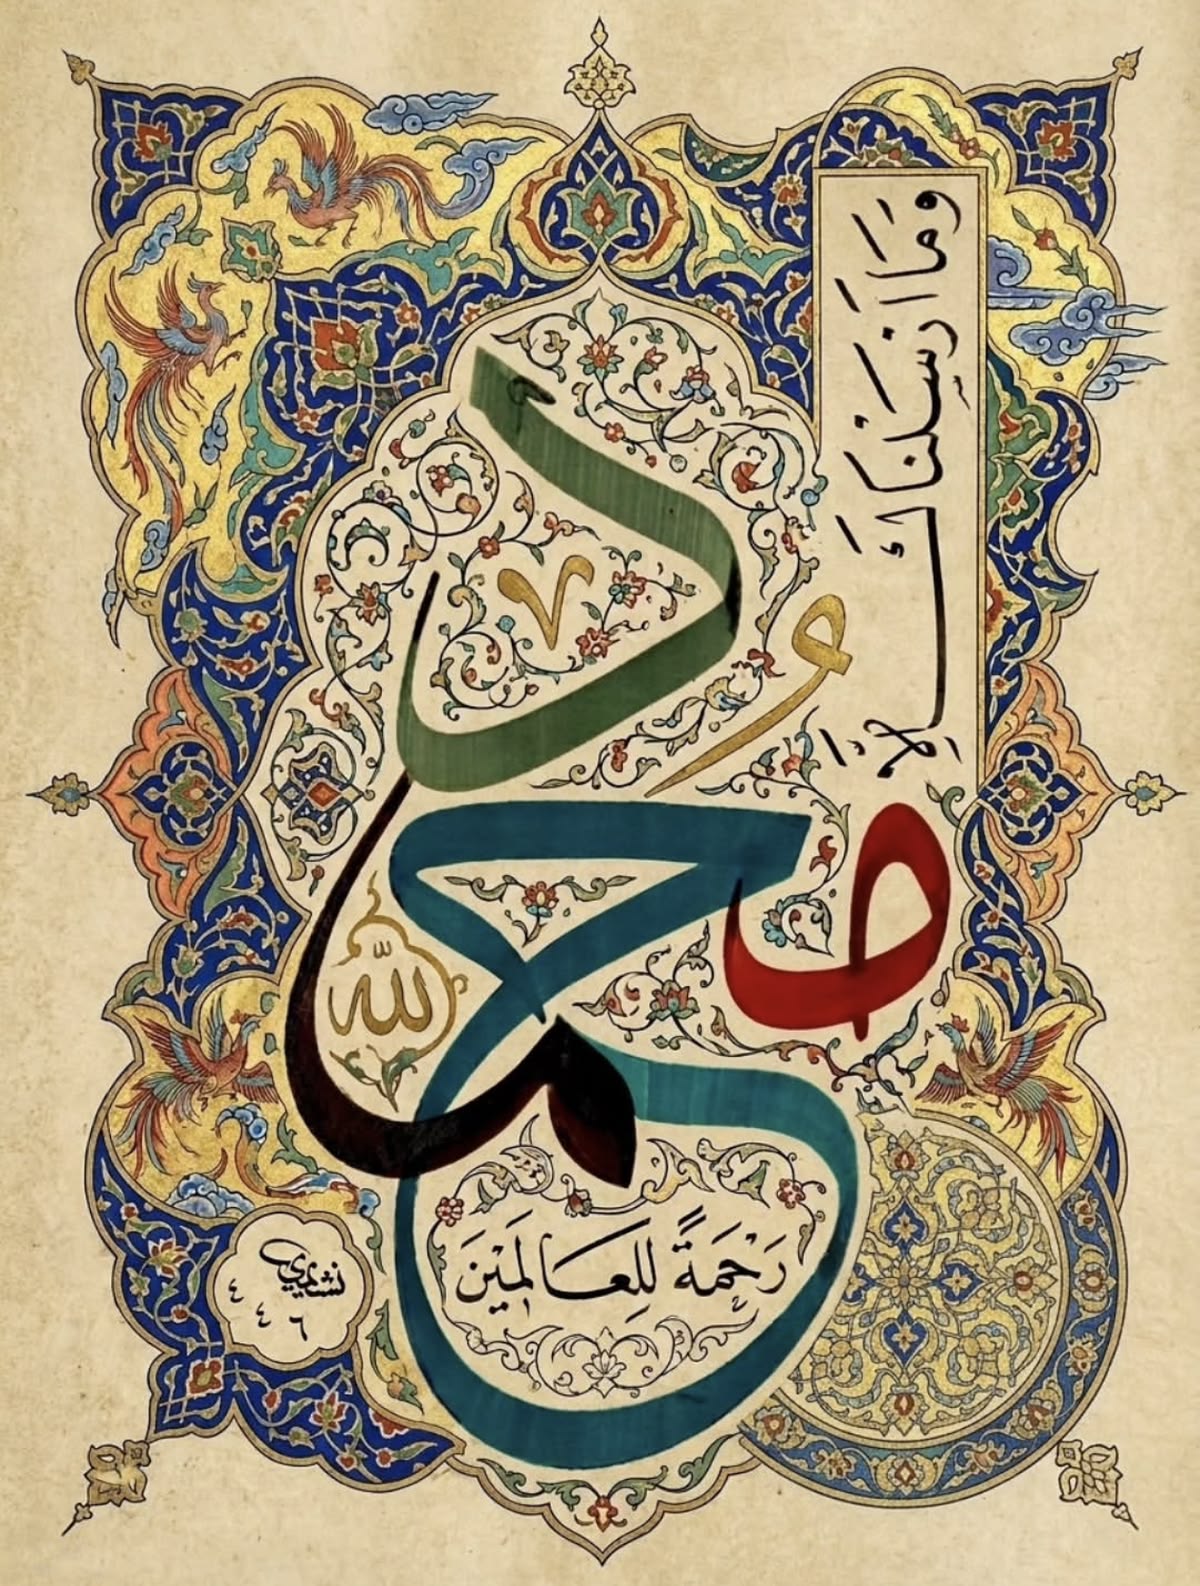 وَمَا اَرْسَلْنَاكَ اِلَّا
محمد
الله
رَحْمَةً لِلعَالَمِيْنَ
٤ ٤ ٦